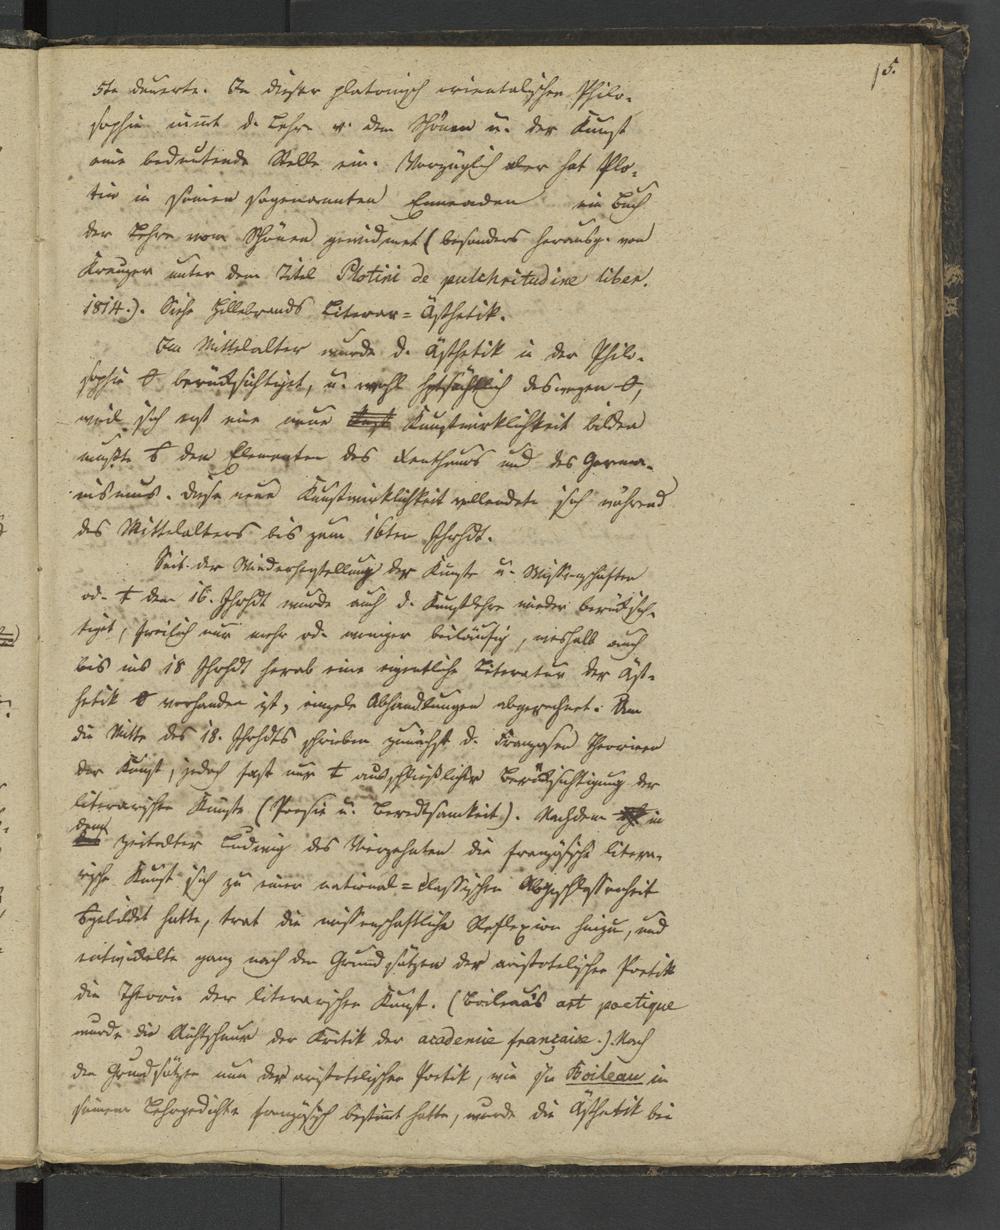 15.
5te dauerte. In dieser platonisch orientalischen Philo-
sophie nimt d. Lehre v. dem Schönen u. der Kunst
eine bedeutende Stelle ein. Vorzüglich aber hat Plo-
tin in seinen sogenannten Enneaden ein Buch
der Lehre vom Schönen gewidmet (besonders herausg. von
Kreuzer unter dem Titel Plotini de pulchritudine liber.
1814.). Siehe Hillebrands Literar=Ästhetik.
Im Mittelalter wurde d. Ästhetik in der Philo-
sophie berücksichtiget, u. wohl hptsächlich deswegen
weil sich erst eine neue Kunstwirklichkeit bilden
mußte den Elementen des und des Germa-
nismus. Diese neue Kunstwirklichkeit vollendete sich während
des Mittelalters bis zum 16ten Jhrhdt.
Seit der Wiederherstellung der Künste u. Wissenschaften
od. dem 16. Jhrhdt wurde auch d. Kunstlehre wieder berücksich-
tiget, freilich nur mehr od. weniger beiläufig, weshalb auch
bis ins 18 Jhrhdt herab eine eigentliche Literatur der Äst-
hetik vorhanden ist, einzele Abhandlungen abgerechnet. Um
die Mitte des 18. Jhrhdts schrieben zunächst d. Franzosen Theorieen
der Kunst, jedoch fast nur ausschließlicher Berücksichtigung der
literarischen Künste (Poesie u. Beredtsamkeit). Nachdem in
dem Zeitalter Ludwig des Vierzehnten die französische litera-
rische Kunst sich zu einer national=classischen Abgeschlossenheit
gebildet hatte, trat die wissenschaftliche Reflexion hinzu, und
entwickelte ganz nach den Grundsätzen der aristotelischen Poetik
die Theorie der literarischen Kunst. (Boileau's art poetique
wurde die Richtschnur der Kritik der academie française.) Nach
den Grundsätzen nun der aristotelischen Poetik, wie sie Boileau in
seinem Lehrgedichte französisch bestimt hatte, wurde die Ästhetik bei